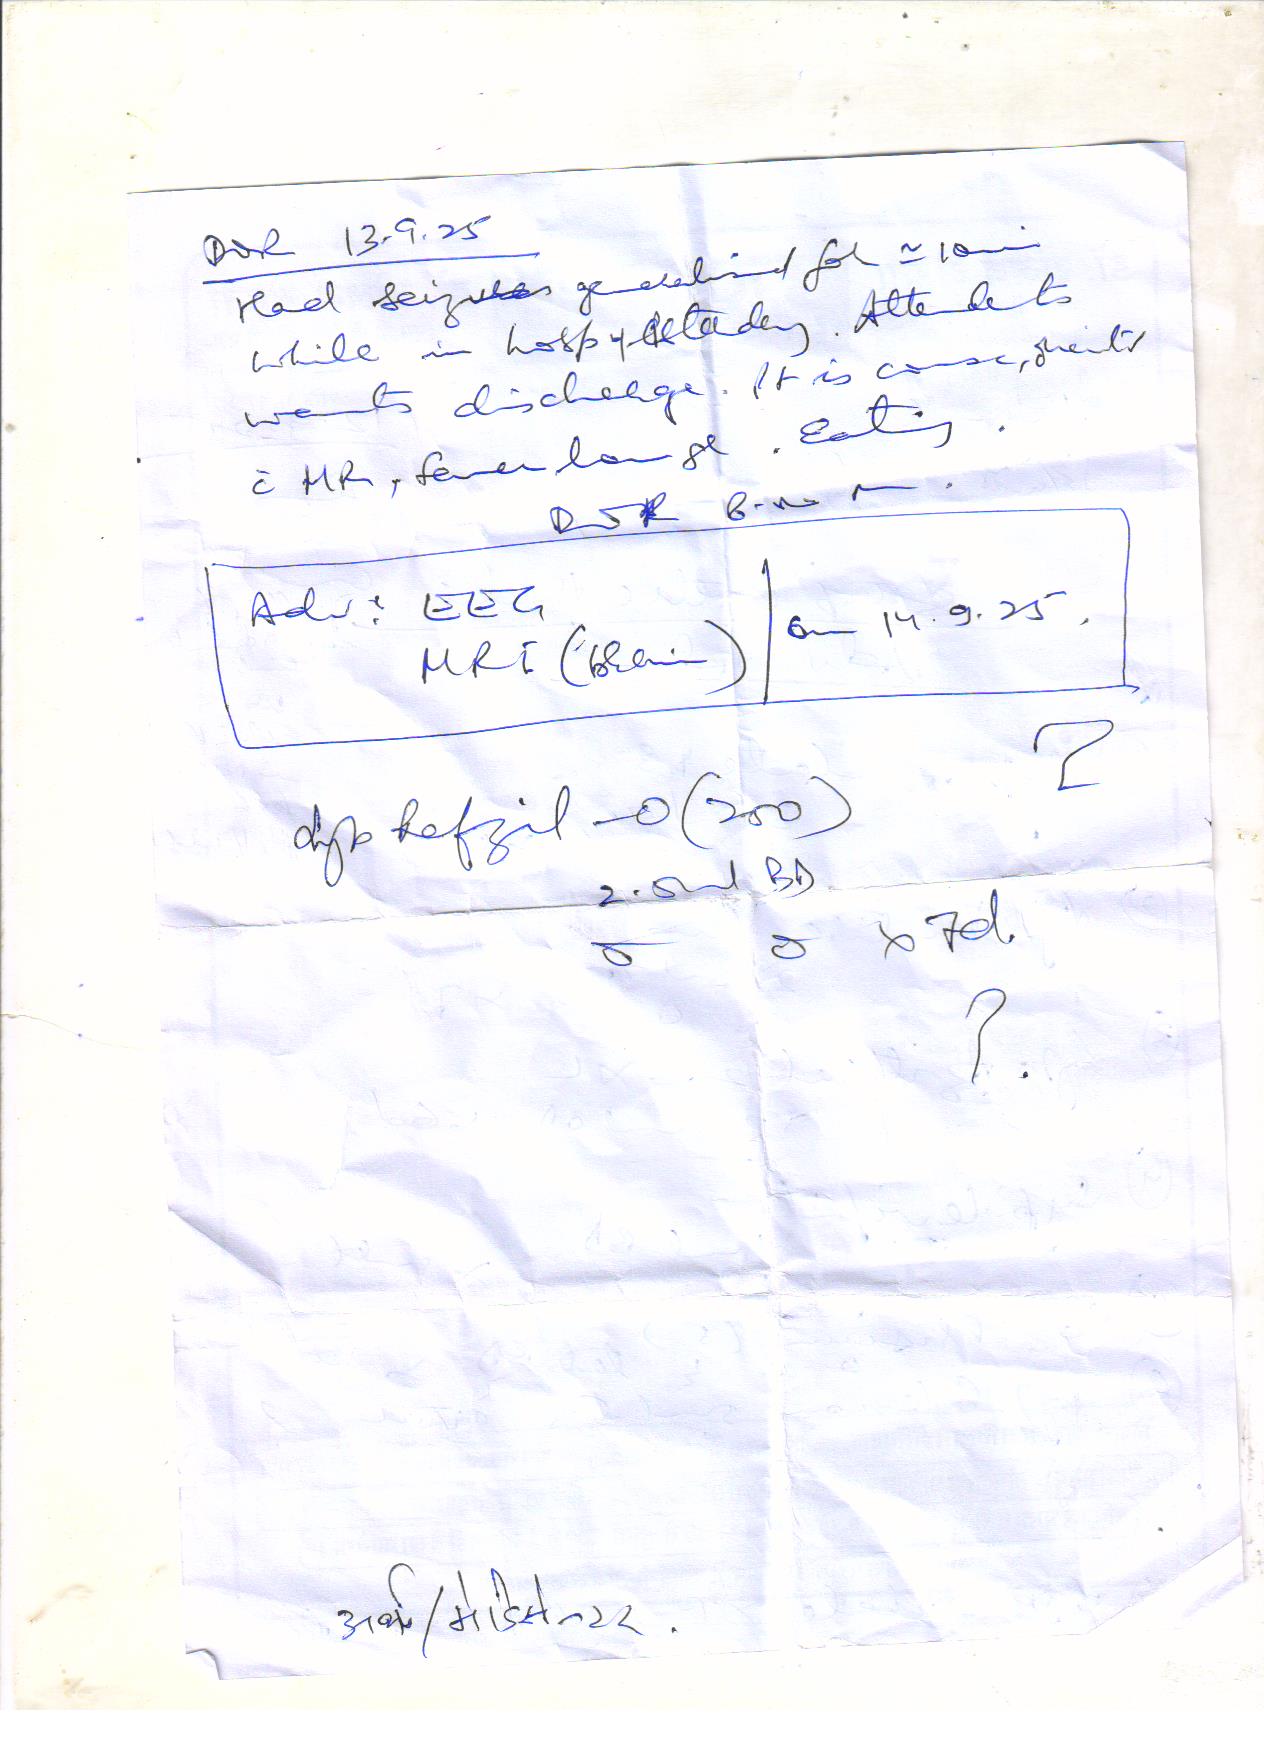 DOR 13.9.25
Had seizures generalised for ≃ 10 min
while in hosp yesterday. Attendents
wants discharge.. It is conse,
c̄ MR, fever . Eating .
DOR
Adv: EEG
MRI (brain)
on 14.9.25.
?
syp kefzil -O (200)
2.5ml BD
x 7d.
?.